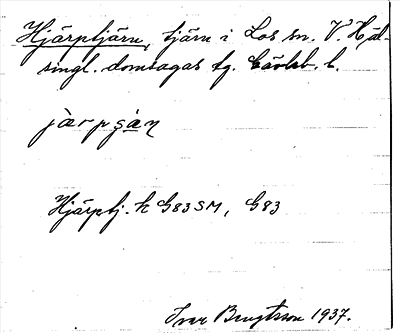 Hjärptjärn, tjärn i Los sn. V. Häl-
singl. domsagas tg. Gävleb. l.
jàrpʂàn
Hjärptj. k G83SM, G83
Ivar Bengtsson 1937.